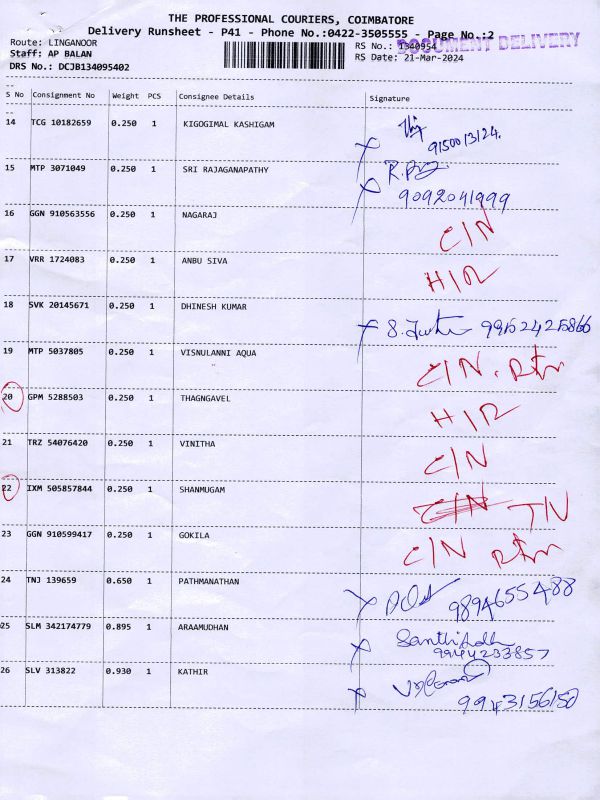 THE PROFESSIONAL COURIERS, COIMBATORE
Delivery Runsheet - P41 - Phone No.:0422-3505555 - Page No.:2
Route: LINGANOOR RS No.: 1340954 DOCUMENT DELIVERY
Staff: AP BALAN RS Date: 21-Mar-2024
DRS No.: DCJB134095402
S No Consignment No Weight PCS Consignee Details Signature
14 TCG 10182659 0.250 1 KIGOGIMAL KASHIGAM
9150013124.
15 MTP 3071049 0.250 1 SRI RAJAGANAPATHY
9092041999
16 GGN 910563556 0.250 1 NAGARAJ C/N
17 VRR 1724083 0.250 1 ANBU SIVA H/R
18 SVK 20145671 0.250 1 DHINESH KUMAR
19 MTP 5037805 0.250 1 VISNULANNI AQUA C/N
20 GPM 5288503 0.250 1 THAGNGAVEL H/R
21 TRZ 54076420 0.250 1 VINITHA C/N
22 IXM 505857844 0.250 1 SHANMUGAM C/N IN
23 GGN 910599417 0.250 1 GOKILA C/N
24 TNJ 139659 0.650 1 PATHMANATHAN
9894655488
25 SLM 342174779 0.895 1 ARAAMUDHAN
9944233857
26 SLV 313822 0.930 1 KATHIR
9943156150